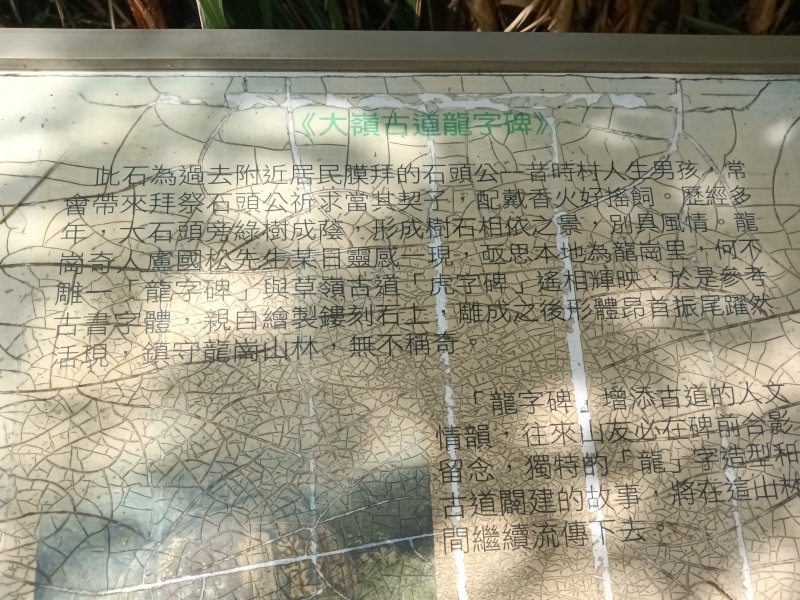 《大嶺古道龍字碑》
此石為過去附近居民膜拜的石頭公－昔時村人生男孩，常
會帶來拜祭石頭公祈求當其契子，配戴香火好搖飼。歷經多
年，大石頭旁綠樹成陰，形成樹石相依之景，別具風情。龍
崗奇人盧國松先生某日靈感一現，敬思本地為龍崗里，何不
雕一「龍字碑」與草嶺古道「虎字碑」遙相輝映，於是參考
古書字體，親自繪製鏤刻石上，雕成之後形體昂首振尾躍然
活現，鎮守龍崗山林，無不稱奇。
「龍字碑」增添古道的人文
情韻，往來山友必在碑前合影
留念，獨特的「龍」字造型和
古道闢建的故事，將在這山林
間繼續流傳下去。